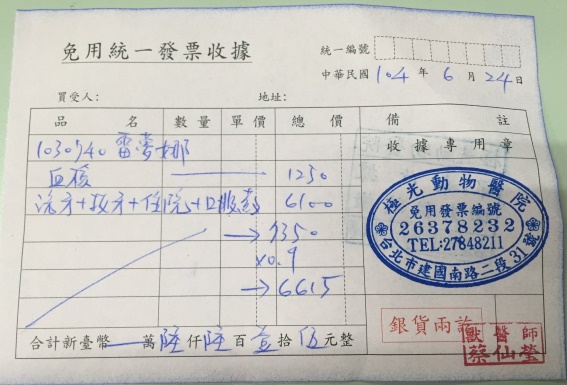 免用統一發票收據
統一編號
中華民國 104 年 6 月 24 日
買受人： 地址：
品名 數量 單價 總價 備註
收據專用章
1030740 雷夢娜
血檢 1250
洗牙+拔牙+住院+口服藥 6100
→ 7350
x0.9
→ 6615
極光動物醫院
免用發票編號
26378232
TEL:27848211
台北市建國南路二段31號
銀貨兩訖
獸醫師
蔡仙瑩
合計新臺幣 萬 陸 仟 陸 百 壹 拾 伍 元整